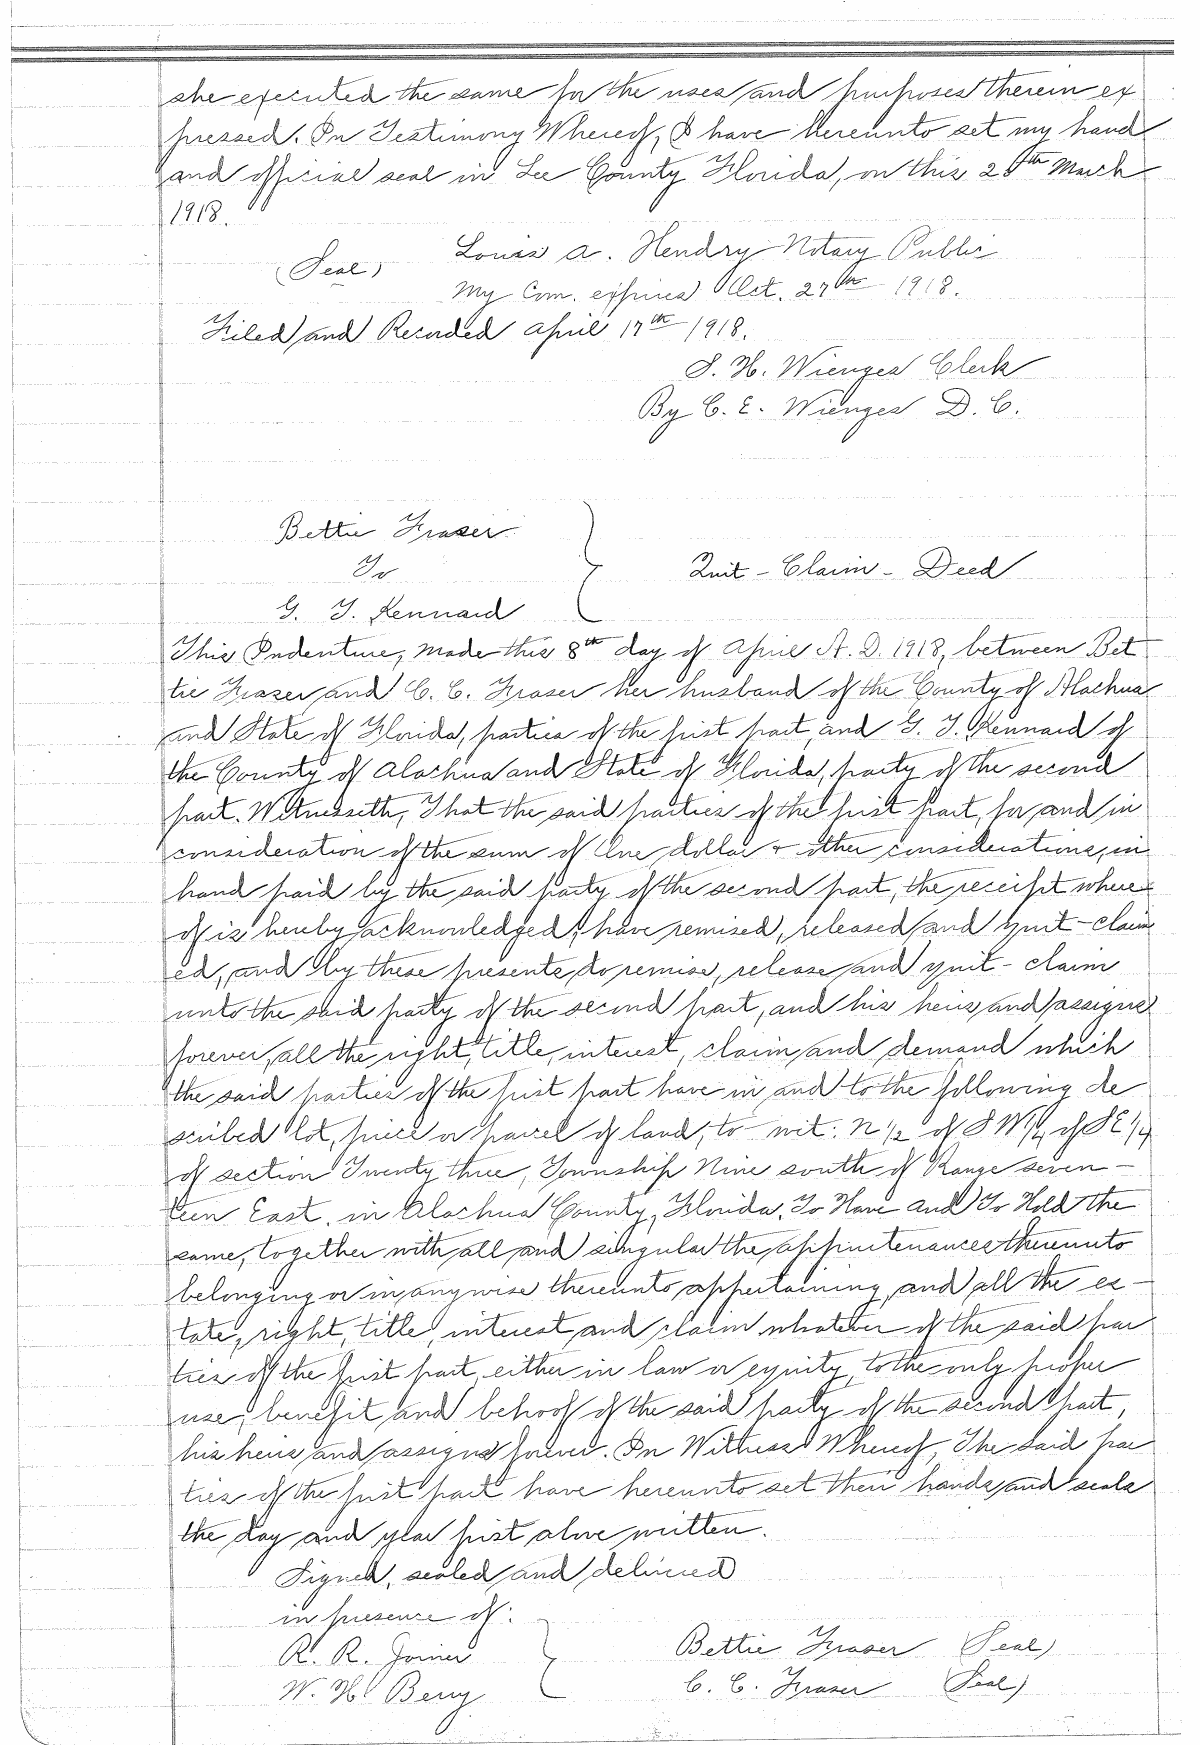 she executed the same for the uses and purposes therein ex
pressed. In Testimony Whereof, I have hereunto set my hand
and official seal in Lee County Florida, on this 28th March
1918.
Louis A. Hendry Notary Public
(Seal)
My Com. expires Oct. 27th 1918.
Filed and Recorded April 17th 1918.
S. H. Wienges Clerk
By C. E. Wienges D. C.
Bettie Fraser
To
Quit-Claim-Deed
G. T. Kennard
This Indenture, Made this 8th day of April A. D. 1918, between Bet
tie Fraser and C. C. Fraser her husband of the County of Alachua
and State of Florida, parties of the first part, and G. T. Kennard of
the County of Alachua and State of Florida, party of the second
part. Witnesseth, That the said parties of the first part, for and in
consideration of the sum of One dollar + other considerations, in
hand paid by the said party of the second part, the receipt where
of is hereby acknowledged, have remised, released and quit-claim
ed, and by these presents do remise, release and quit-claim
unto the said party of the second part, and his heirs and assigns
forever, all the right, title, interest, claim and demand which
the said parties of the first part have in and to the following de
scribed lot, piece or parcel of land, to-wit: N 1/2 of SW 1/4 of SE 1/4
of section Twenty three, Township Nine south of Range seven-
teen East, in Alachua County, Florida, To Have and To Hold the
same, together with all and singular the appurtenances thereunto
belonging or in anywise thereunto appertaining, and all the es-
tate, right, title, interest and claim whatever of the said par
ties of the first part, either in law or equity, to the only proper
use, benefit and behoof of the said party of the second part,
his heirs and assigns forever. In Witness Whereof, The said par
ties of the first part have hereunto set their hands and seals
the day and year first above written.
Signed, sealed and delivered
in presence of:
R. R. Joiner
Bettie Fraser (Seal)
W. H. Berry
C. C. Fraser (Seal)